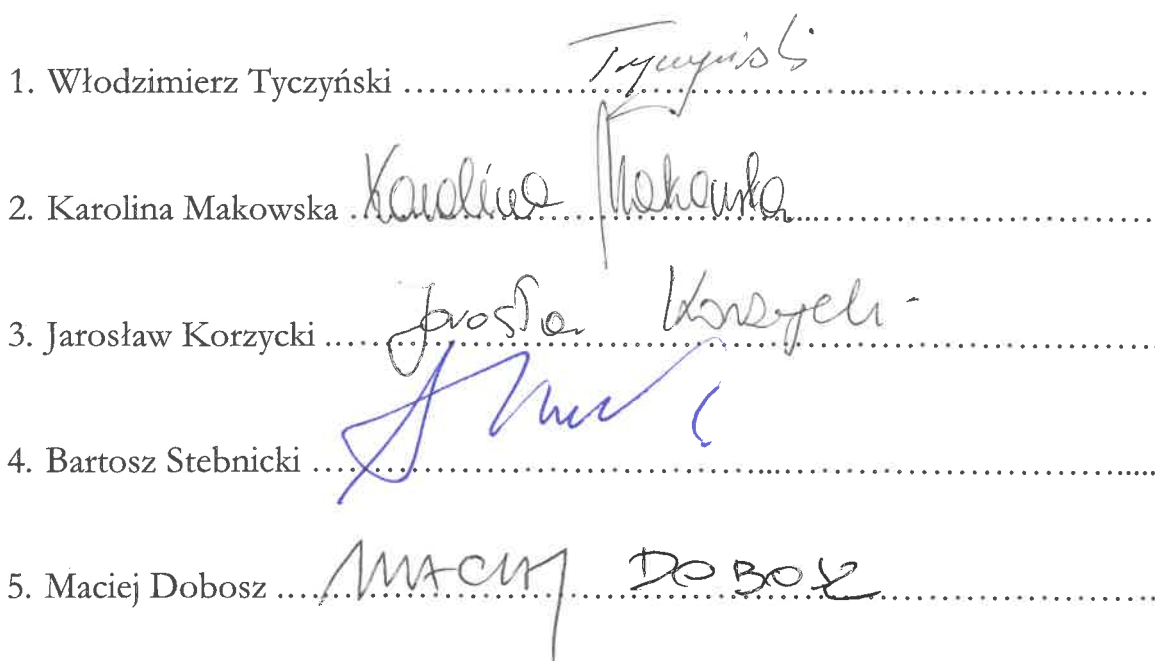 1. Włodzimierz Tyczyński ........................ Tyczyński
2. Karolina Makowska ........................ Karolina Makowska
3. Jarosław Korzycki ........................ Jarosław Korzycki
4. Bartosz Stebnicki ........................
5. Maciej Dobosz ........................ MACIEJ DOBOSZ